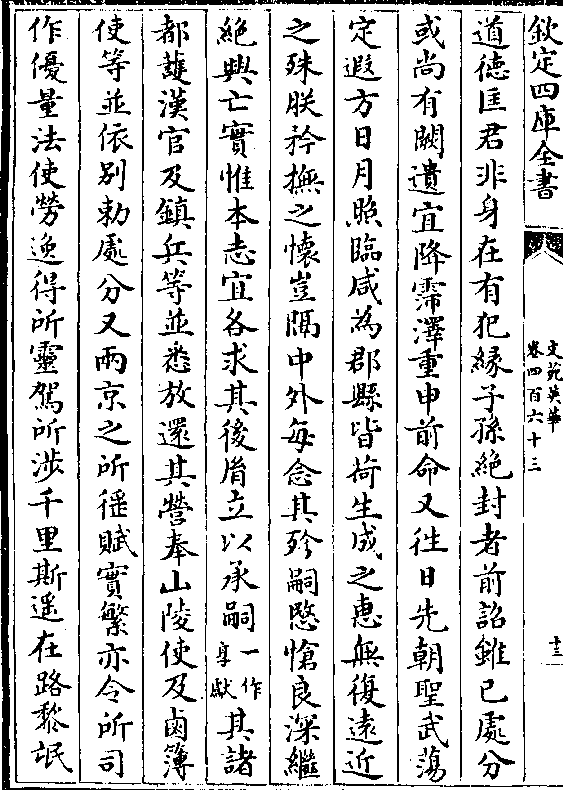 欽定四庫全書
文苑英華
卷四百六十三
十三
道徳匡君非身在有犯縁子孫絶封者前詔雖已處分
或尚有闕遺宜降霈澤重申前命又往日先朝聖武蕩
定遐方日月照臨咸為郡縣皆荷生成之恵無復遠近
之殊朕矜撫之懐豈隔中外每念其殄嗣愍愴良深繼
絶興亡實惟本志宜各求其後胤立以承嗣一作享獻其諸
都䕶漢官及鎮兵等並悉放還其營奉山陵使及鹵簿
使等並依别勅處分又兩京之所徭賦實繁亦令所司
作優量法使勞逸得所靈駕所渉千里斯遥在路黎氓